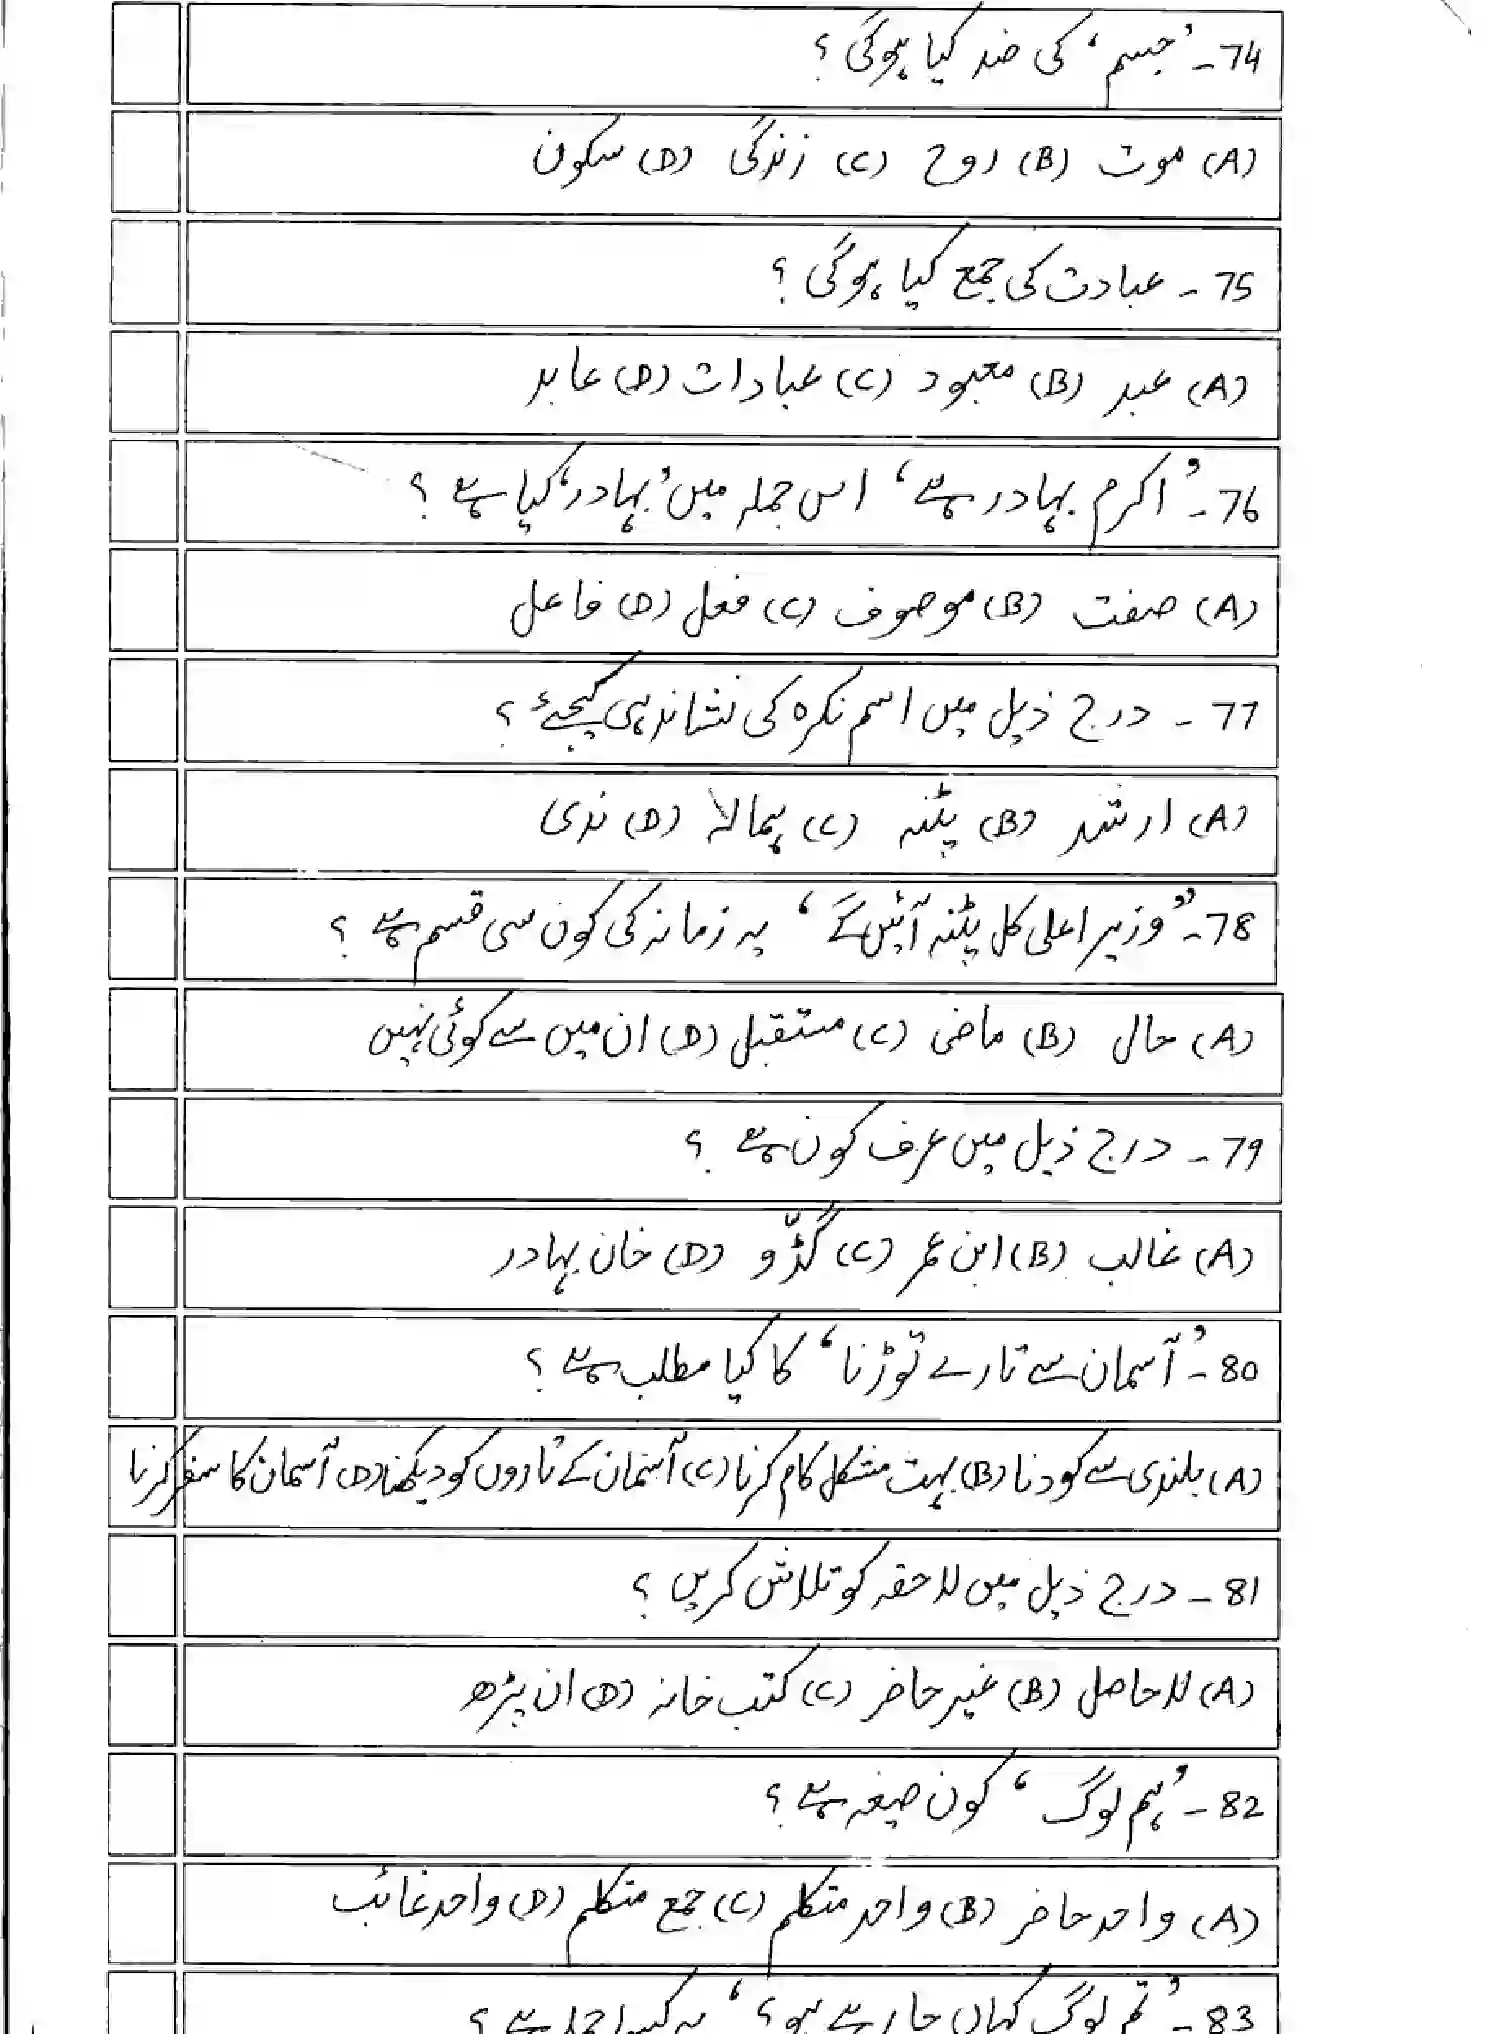 74۔ ’جسم‘ کی ضد کیا ہوگی ؟
(A) موت (B) روح (C) زندگی (D) سکون
75 ۔ عبادت کی جمع کیا ہوگی ؟
(A) عبد (B) معبود (C) عبادات (D) عابد
76۔ ’اکرم بہادر ہے‘ اس جملہ میں ’بہادر‘ کیا ہے ؟
(A) صفت (B) موصوف (C) فعل (D) فاعل
77 ۔ درج ذیل میں اسم نکرہ کی نشاندہی کیجئے ؟
(A) ارشد (B) پٹنہ (C) ہمالہ (D) ندی
78۔ ”وزیر اعلی کل پٹنہ آئیں گے‘ یہ زمانہ کی کون سی قسم ہے ؟
(A) حال (B) ماضی (C) مستقبل (D) ان میں سے کوئی نہیں
79 ۔ درج ذیل میں عرف کون ہے ؟
(A) غالب (B) ابن عمر (C) گڈّو (D) خان بہادر
80 ۔ ’آسمان سے تارے توڑنا‘ کا کیا مطلب ہے ؟
(A) بلندی سے کودنا (B) بہت مشکل کام کرنا (C) آسمان کے تاروں کو دیکھنا (D) آسمان کا سفر کرنا
81 ۔ درج ذیل میں لاحقہ کو تلاش کریں ؟
(A) لاحاصل (B) غیر حاضر (C) کتب خانہ (D) ان پڑھ
82 ۔ ’ہم لوگ‘ کون صیغہ ہے ؟
(A) واحد حاضر (B) واحد متکلم (C) جمع متکلم (D) واحد غائب
83 ۔ ’تم لوگ کہاں جا رہے ہو؟‘ یہ کیسا جملہ ہے ؟